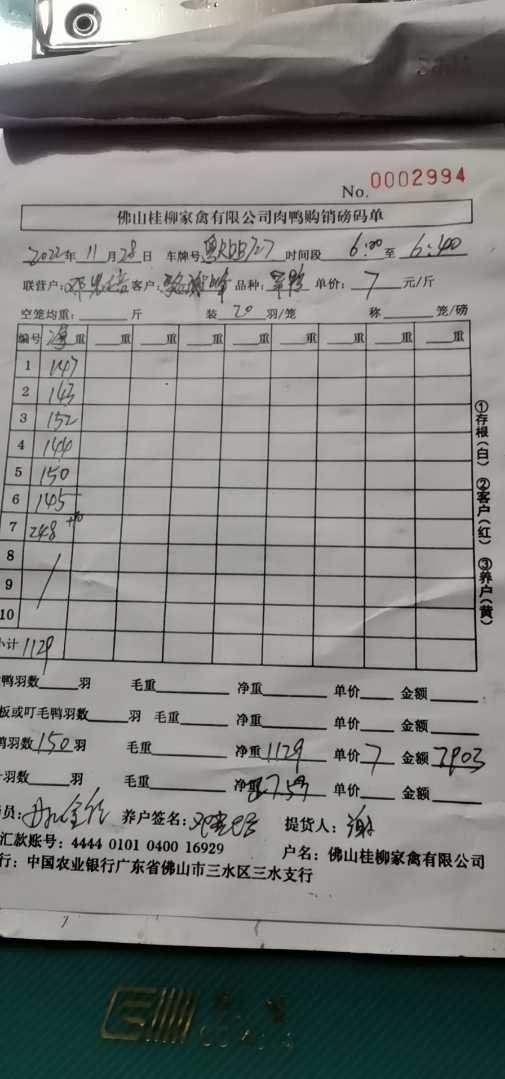 No. 0002994
佛山桂柳家禽有限公司肉鸭购销磅码单
2022年 11月 28日 车牌号 时间段 6:00 至 6:40
联营户: 客户: 品种: 单价: 7 元/斤
空笼均重: 斤 装 20 羽/笼 称 笼/磅
编号 净重 重 重 重 重 重 重 重 重
1 147
2 143
3 152
4 144
5 150
6 145
7 248 +10
8
9
10
小计 1129
鸭羽数 羽 毛重 净重 单价 金额
板或叮毛鸭羽数 羽 毛重 净重 单价 金额
鸭羽数 150 羽 毛重 净重 1129 单价 7 金额 7903
羽数 羽 毛重 净重 7.53 单价 金额
员: 养户签名: 提货人: 谢
汇款账号: 4444 0101 0400 16929 户名: 佛山桂柳家禽有限公司
行: 中国农业银行广东省佛山市三水区三水支行
①存根(白) ②客户(红) ③养户(黄)